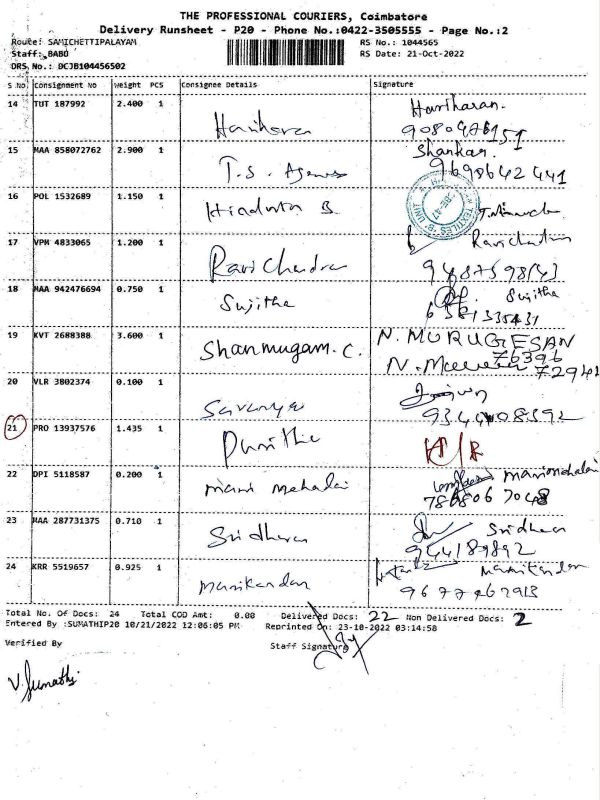 THE PROFESSIONAL COURIERS, Coimbatore
Delivery Runsheet - P20 - Phone No.:0422-3505555 - Page No.:2
Route: SAMICHETTIPALAYAM RS No.: 1044565
Staff: BABU RS Date: 21-Oct-2022
DRS No.: DCJB104456502
S No. Consignment No Weight PCS Consignee Details Signature
14 TUT 187992 2.400 1 Hariharan Hariharan.
15 MAA 858072762 2.900 1 T.S. Shankar.
9690642441
16 POL 1532689 1.150 1 TEXTILES 'B' UNIT
17 VPM 4833065 1.200 1 Ravi Chandra Ravichandran
18 MAA 942476694 0.750 1 Sujitha Sujitha
6381335431
19 KVT 2688388 3.600 1 Shanmugam.C. N. MURUGESAN
76396
72941
20 VLR 3802374 0.100 1 Saranya
21 PRO 13937576 1.435 1 Punitha
22 DPI 5118587 0.200 1 mani mehalai manimehalai
23 MAA 287731375 0.710 1 Sridharan Sridharan
944189892
24 KRR 5519657 0.925 1 Manikandan Manikandan
Total No. Of Docs: 24 Total COD Amt: 0.00 Delivered Docs: 22 Non Delivered Docs: 2
Entered By :SUMATHIP20 10/21/2022 12:06:05 PM Reprinted On: 23-10-2022 03:14:58
Verified By Staff Signature
V. Sumathi